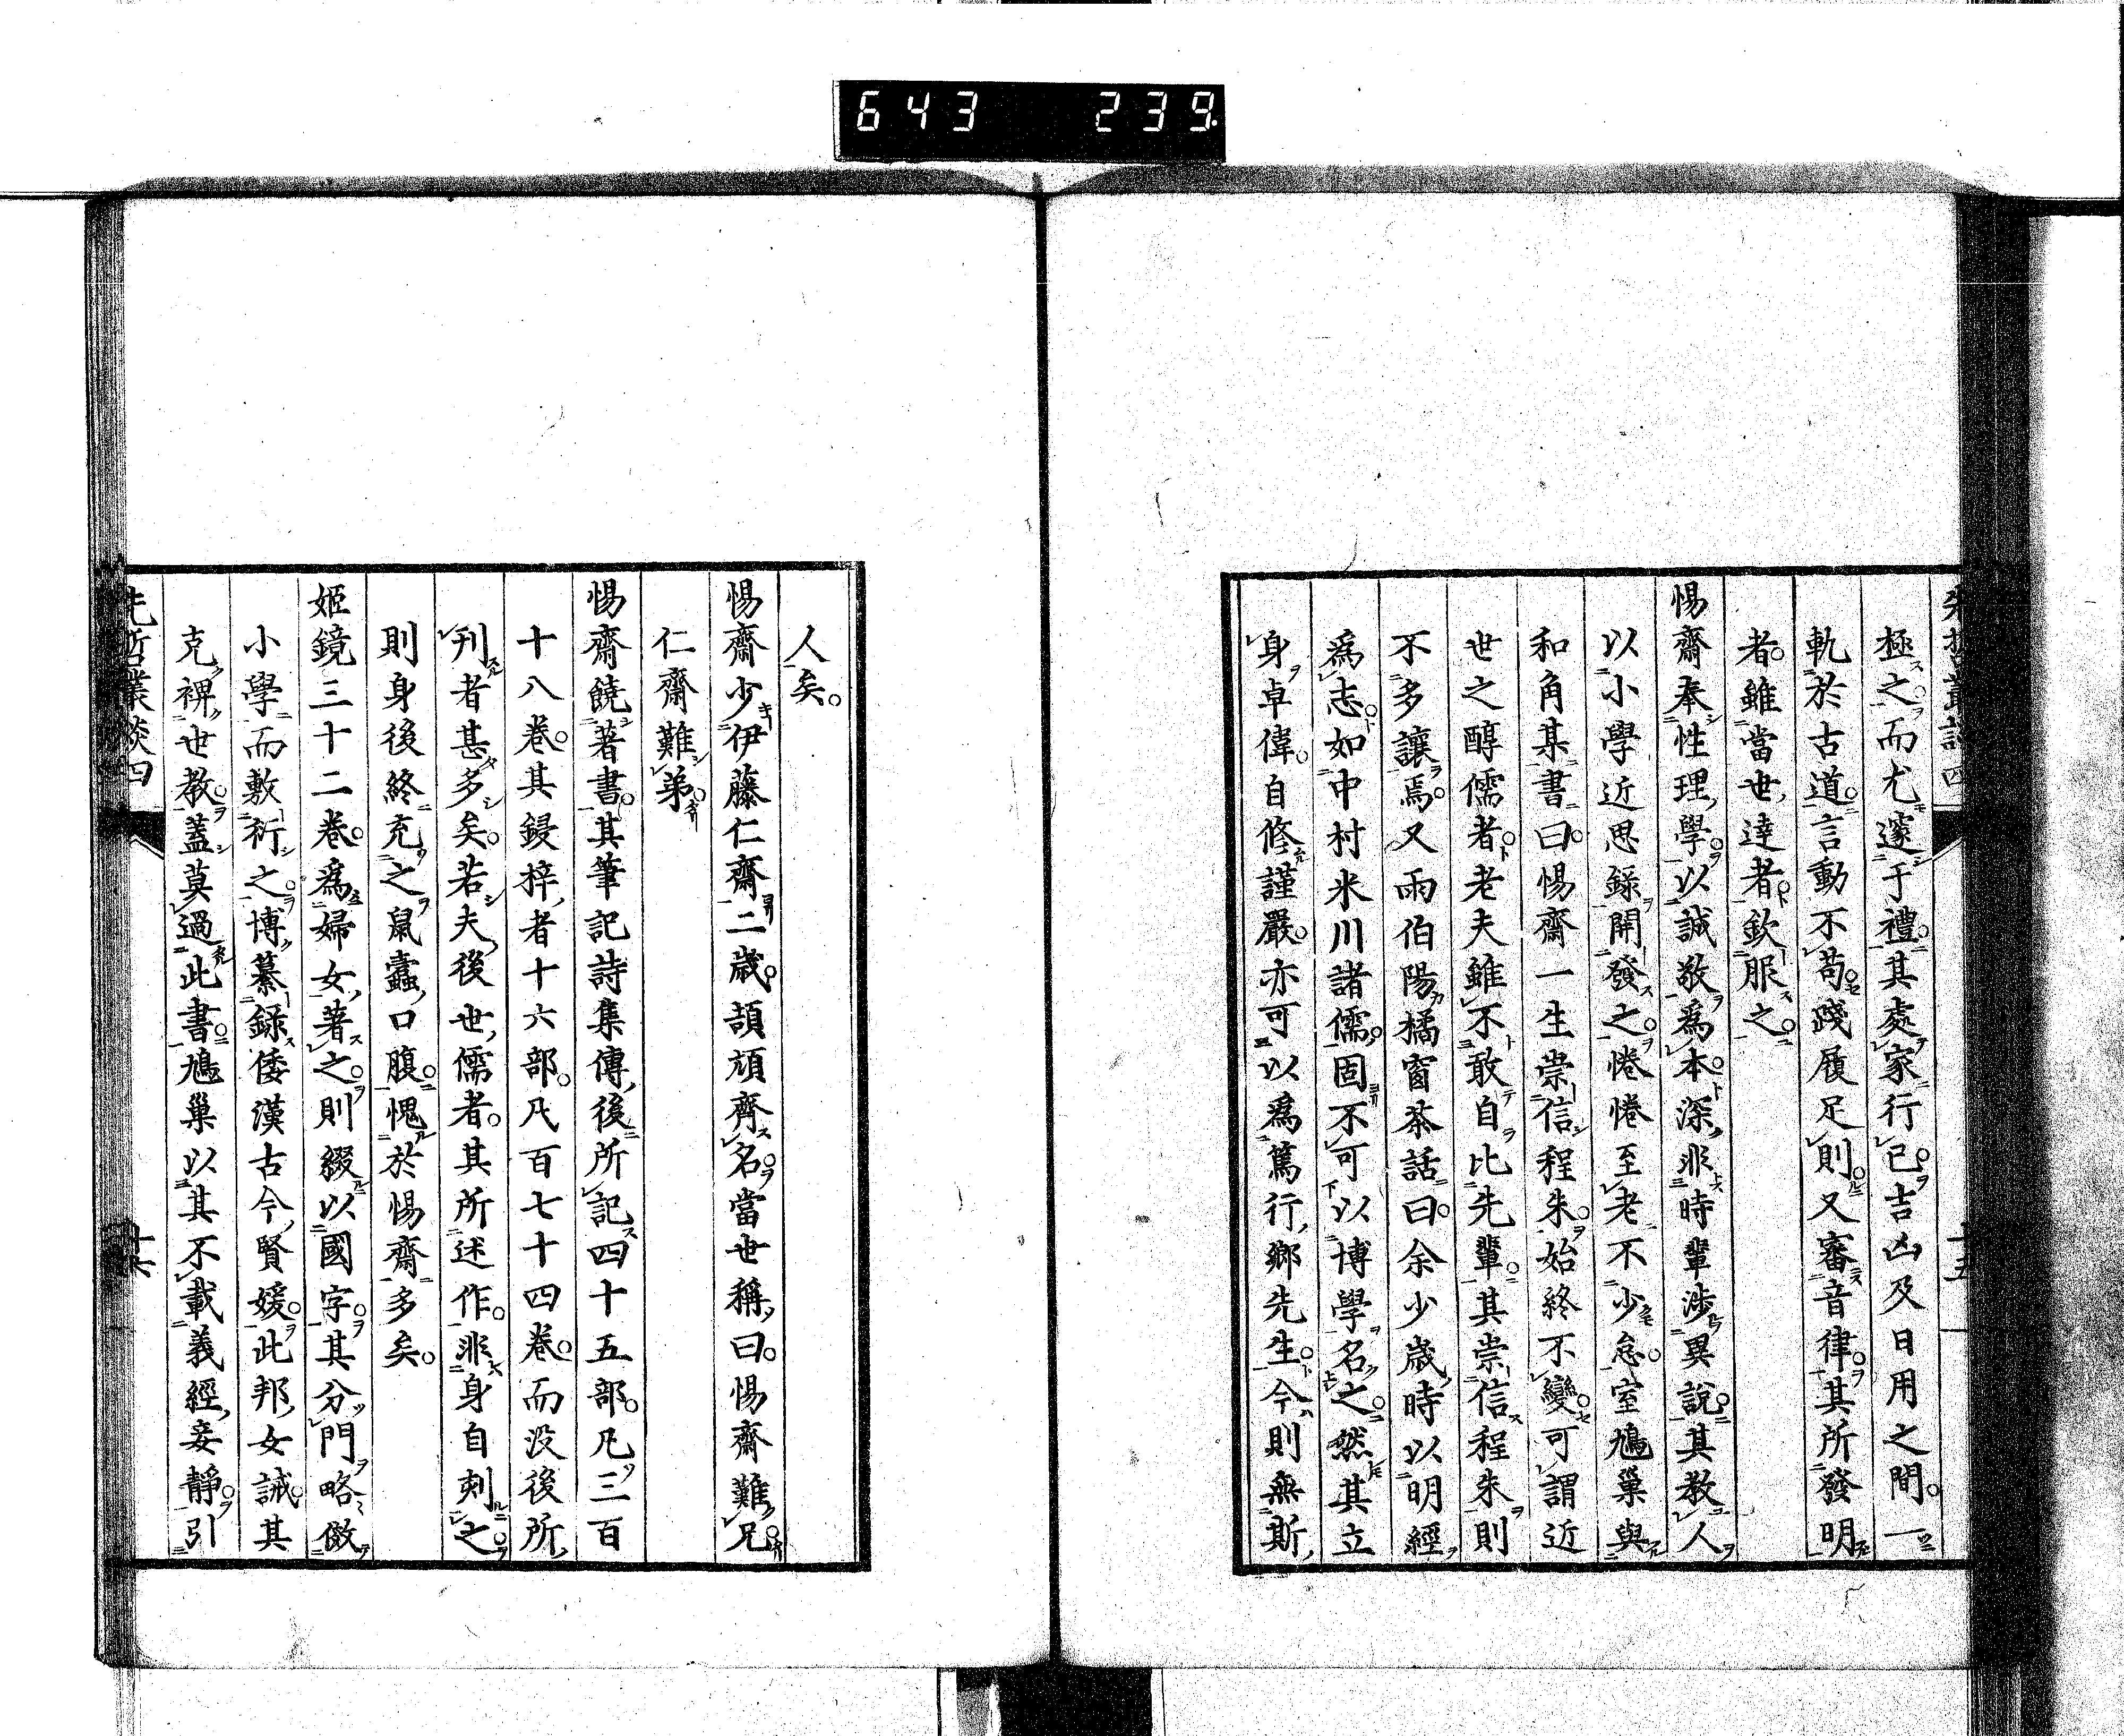 643 239
先哲叢談四
十五
極之而尤邃于禮其處家行己吉凶及日用之間一
軌於古道言動不苟踐履足則又審音律其所發明
者雖當世達者欽服之
惕齋奉性理學以誠敬爲本深非時輩涉異說其教人
以小學近思錄開發之惓惓至老不少怠室鳩巢與
和角某書曰惕齋一生崇信程朱始終不變可謂近
世之醇儒者老夫雖不敢自比先輩其崇信程朱則
不多讓焉又雨伯陽橘窗茶話曰余少歲時以明經
爲志如中村米川諸儒固不可以博學名之然其立
身卓偉自修謹嚴亦可以爲篤行鄉先生今則無斯
人矣
惕齋少伊藤仁齋二歲頡頏齊名當世稱曰惕齋難兄
仁齋難弟
惕齋饒著書其筆記詩集傳後所記四十五部凡三百
十八卷其鋟梓者十六部凡百七十四卷而沒後所
刊者甚多矣若夫後世儒者其所述作非身自刻之
則身後終充之鼠蠹口腹愧於惕齋多矣
姬鏡三十二卷爲婦女著之則綴以國字其分門略倣
小學而敷衍之博纂錄倭漢古今賢媛此邦女誡其
克裨世教蓋莫過此書鳩巢以其不載義經妾靜引
先哲叢談四
十六